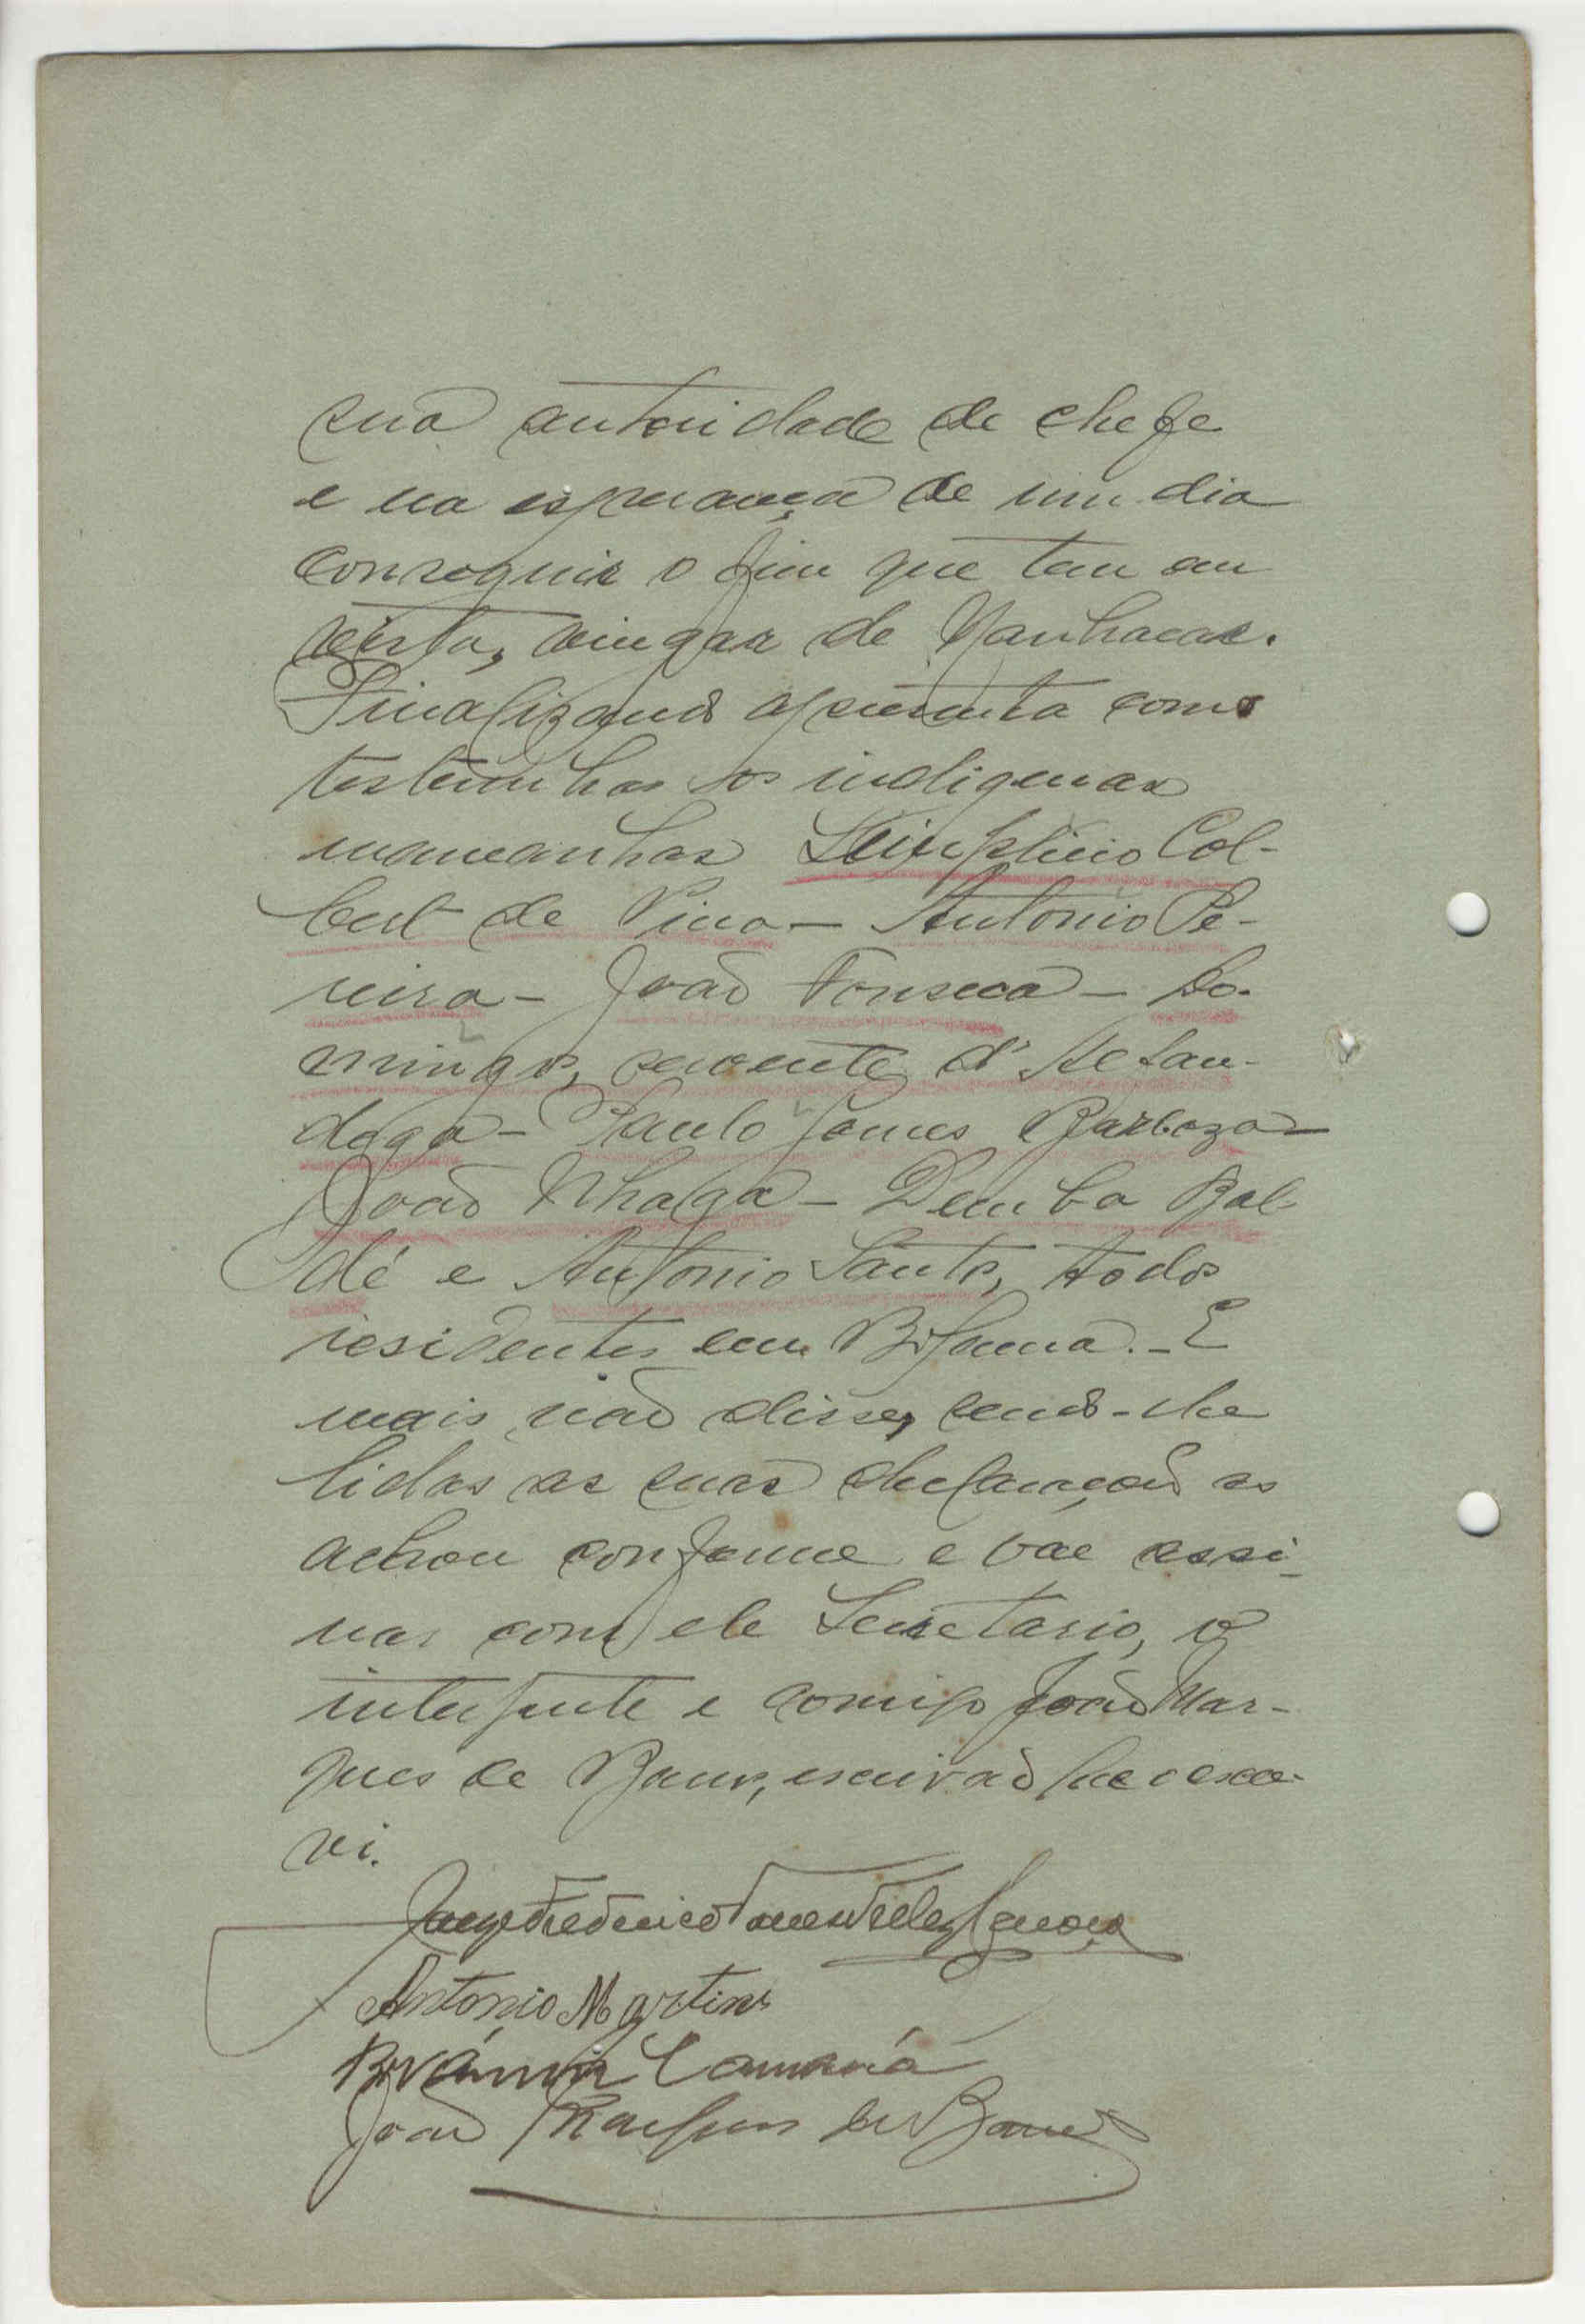 sua autoridade de chefe
e na esperança de um dia
conseguir o fim que tem em
vista, vingar de Nanhacar.
Finalizando apresenta como
testemunhas os indigenas
mamanhas Simplicio Col-
bert de Pina – Antonio Pe-
reira – João Fonseca – Do-
mingos, servente d'Alfan-
dega – Paulo Gomes Barboza –
João Nhaga – Demba Bal-
dé e Antonio Santos, todos
residentes em Bolama. – E
mais não disse, sendo-lhe
lidas as suas declarações as
achou conforme e vae assi-
nar com ele Secretario, o
interprete e comigo João Mar-
ques de Barros, escrivão que o escre-
vi.
Antonio Martins
Camará
João Marques de Barros